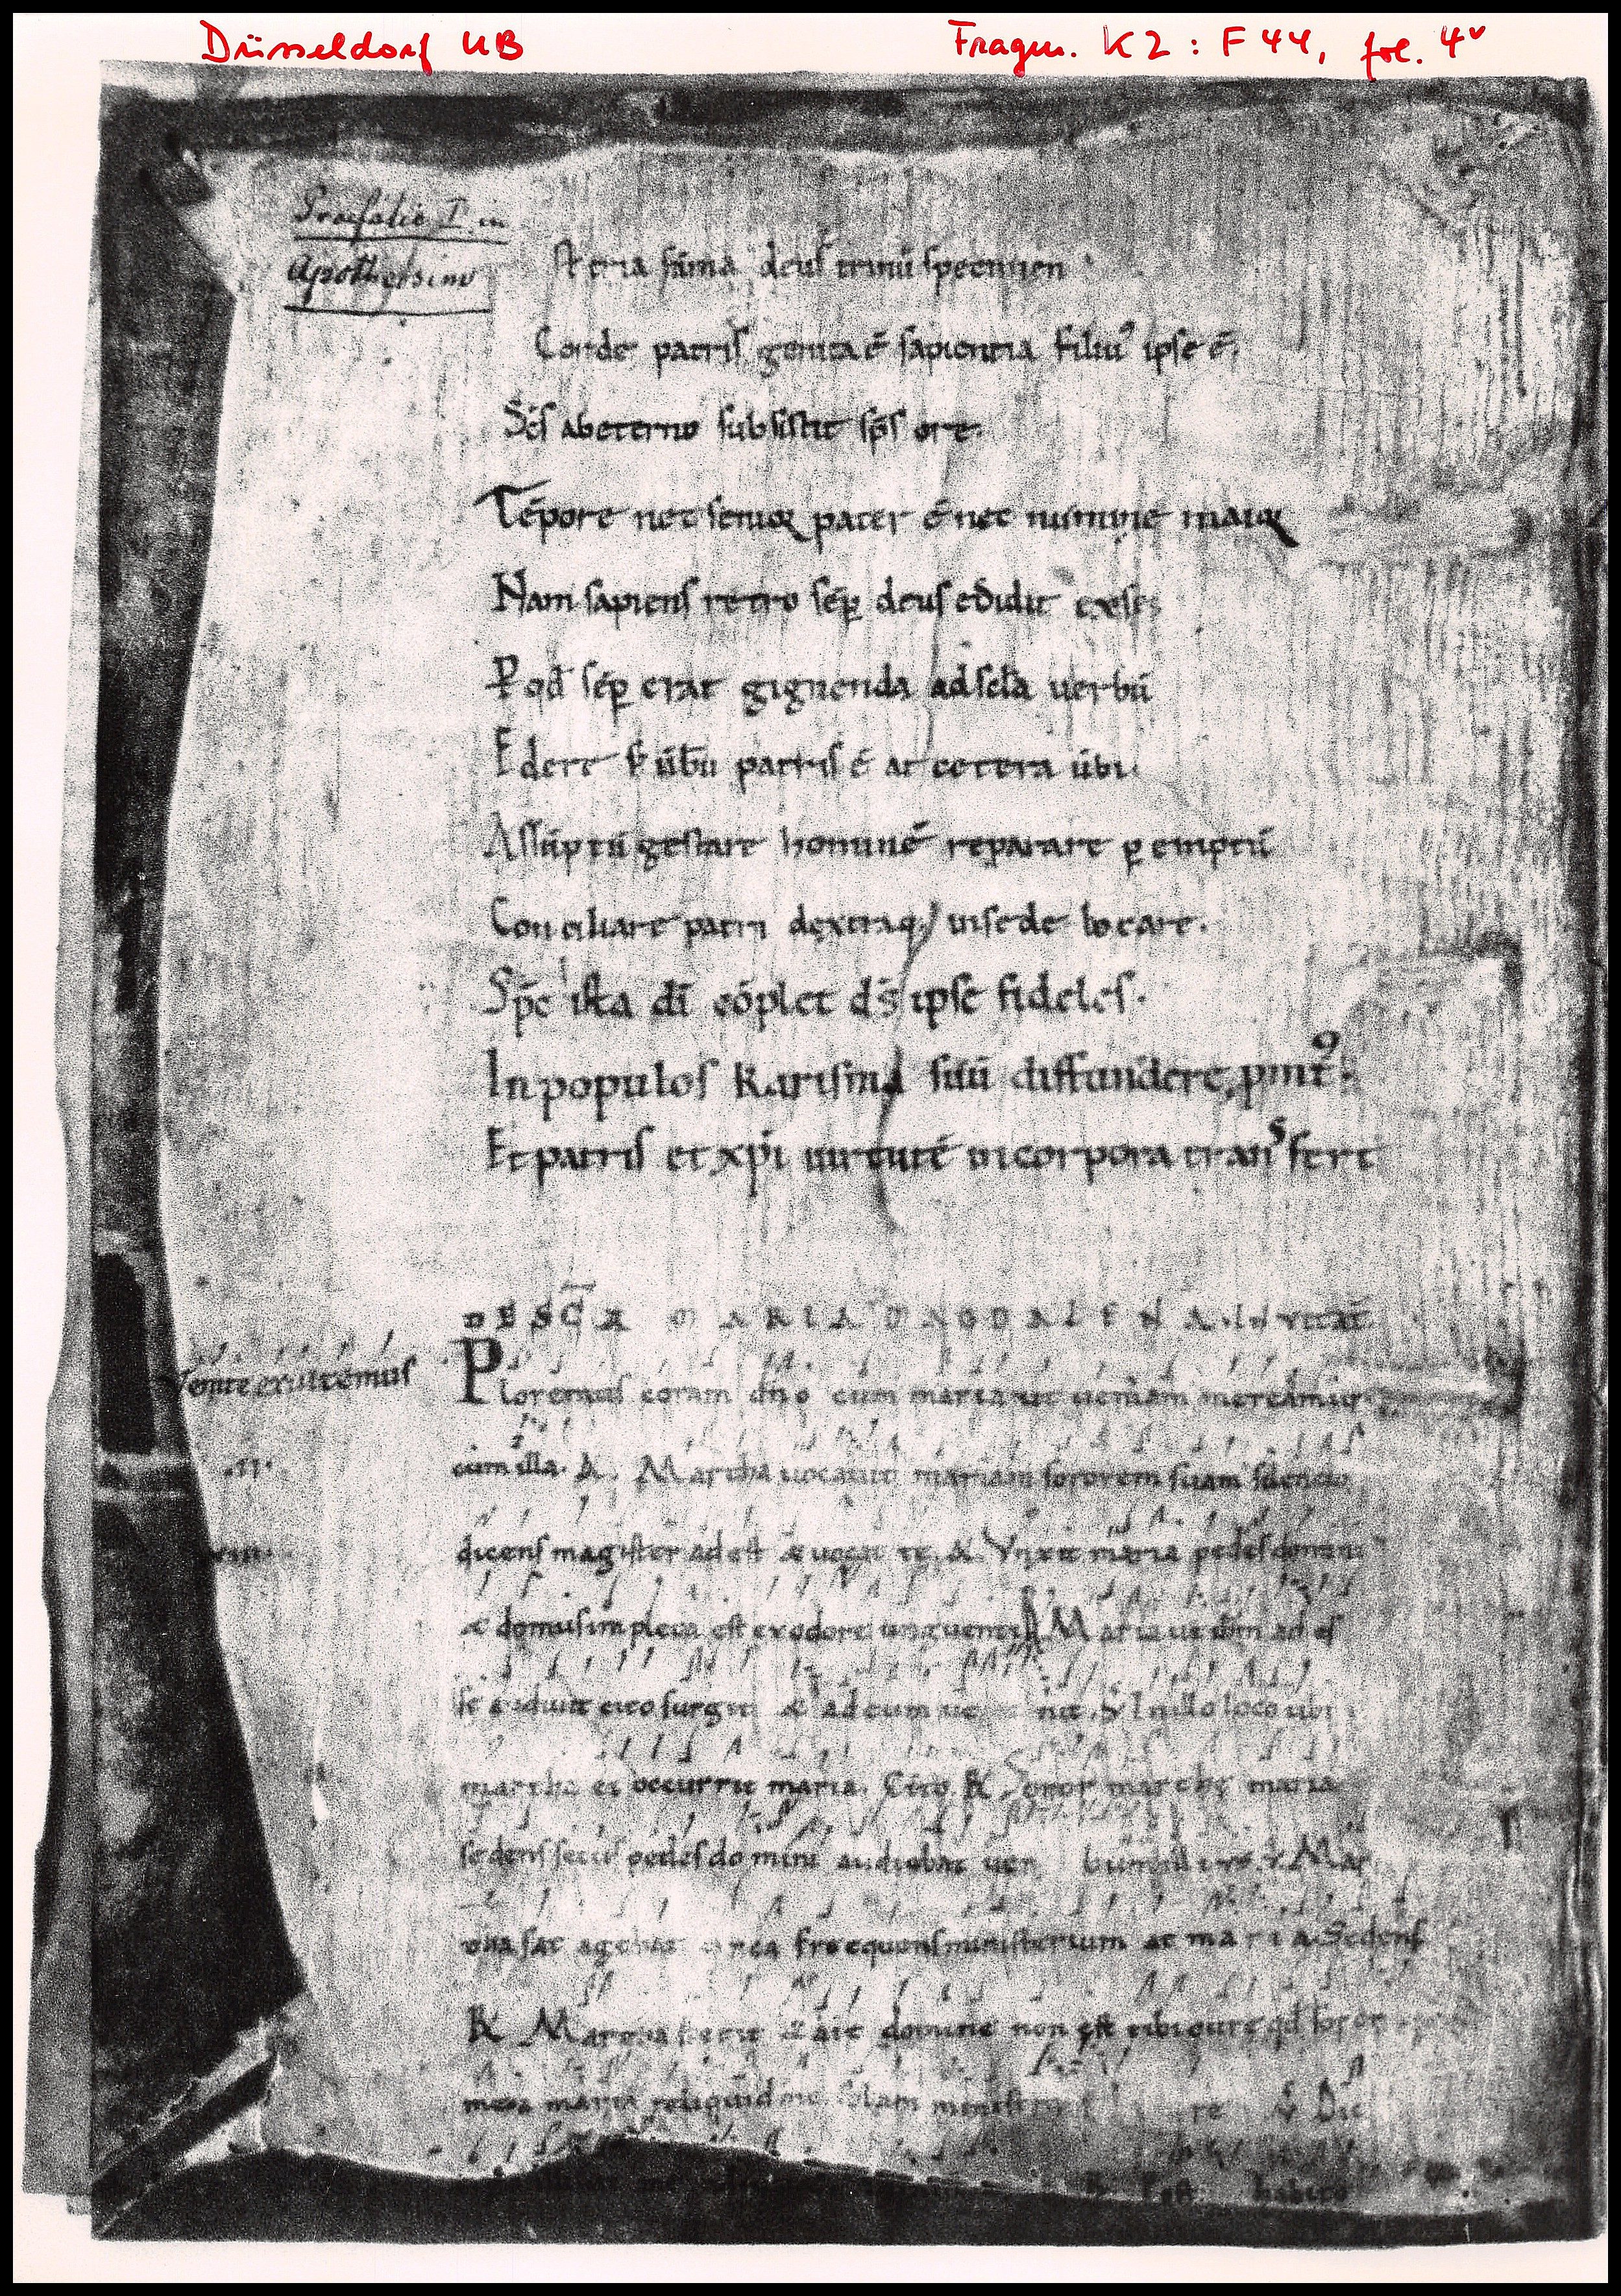 Düsseldorf UB
Fragm. K2 : F 44, fol. 4v
Praefatio I in
Apotheosim
Est tria sūma deuſ trinū ſpecimen
Corde patriſ genita ē ſapientia filiuꝰ ipſe ē.
Sc̄ſ ab eterno ſubſiſtit ſp̄ſ ore.
Tēpore nec ſenioꝝ pater ē nec numine maioꝝ
Nam ſapienſ retro ſēꝑ deuſ edidit ex ſe;
P qd̄ ſēꝑ erat gignenda ad ſecla uerbū
Edere ſꝫ ūbū patriſ ē at cetera ūbi.
Aſſūptū geſtare hominē reparare ꝑemptū
Conciliare patri dextraq; in ſede locare.
Spc̄ iſta dī cōplet dſ̄ ipſe fideleſ.
In populoſ kariſma ſuū diffundere ꝓmt̄ꝰ.
Et patriſ et xp̄i uirtutē in corpora tranſfert
DE SC̄A MARIA MAGDALENA. INVITAT̄
Venite exultemuſ
Ploremuſ coram dn̄o cum maria ut ueniam mereamur
cum illa. A. Martha uocauit mariam ſororem ſuam ſilencio
.II.
dicenſ magiſter adeſt æ uocat te. A. Vnxit maria pedeſ domini
.III.
æ domuſ impleta eſt ex odore unguenti A Maria ut dn̄m ad eſ
ſe audiuit cito ſurgit æ ad eum ue nit. V In illo loco ubi
martha ei occurrit maria. Cito. R Soror marthę maria
ſedenſ ſecuſ pedeſ domini audiebat uer bum illiuſ. V. Mar
tha ſat agebat circa frequenſ miniſterium at maria. Sedenſ
R Martha ſtetit & ait domine non eſt tibi curę qd̄ ſoror
mea maria reliquid me ſolam miniſtra re V Dic